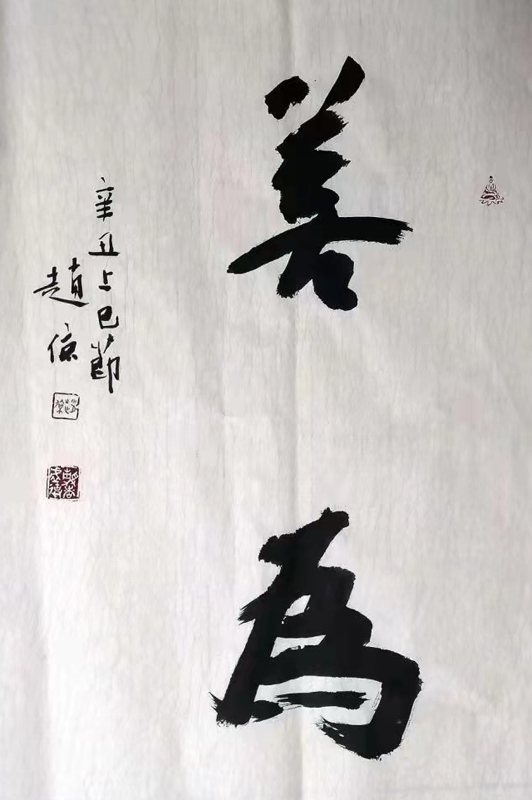 善為
辛丑上巳節
趙倞